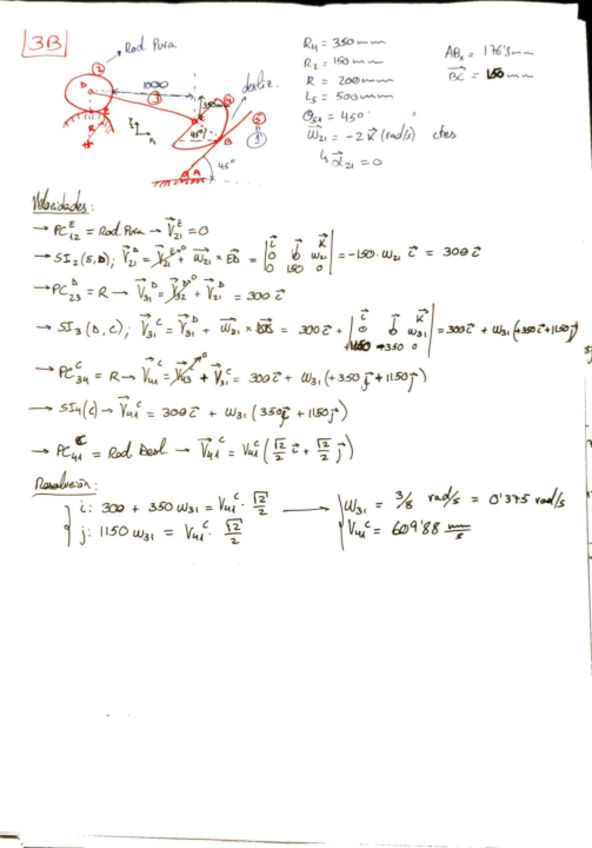 3B
Rod. Pura
1000
desliz.
45°
45°
R₄ = 350 mm
R₂ = 150 mm
R = 200 mm
L₅ = 500 mm
θ₅₁ = 450°
ω⃗₂₁ = -2 K⃗ (rad/s) ctes
↳ α⃗₂₁ = 0
ABₓ = 176'8 mm
BC⃗ = 150 mm
Velocidades:
→ PC₁₂ᴱ = Rod. Pura → V⃗₂₁ᴱ = 0
→ SI₂(E,D); V⃗₂₁ᴰ = V⃗₂₁ᴱ⁰ + ω⃗₂₁ × E⃗D = | i⃗ j⃗ K⃗ 0 0 ω₂₁ 0 150 0 | = -150·ω₂₁ i⃗ = 300 i⃗
→ PC₂₃ᴰ = R → V⃗₃₁ᴰ = V⃗₃₂ᴰ⁰ + V⃗₂₁ᴰ = 300 i⃗
→ SI₃(D,C); V⃗₃₁ᶜ = V⃗₃₁ᴰ + ω⃗₃₁ × = 300 i⃗ + | i⃗ j⃗ K⃗ 0 0 ω₃₁ +1150 -350 0 | = 300 i⃗ + ω₃₁(+350 i⃗ + 1150 j⃗)
→ PC₃₄ᶜ = R → V⃗₄₁ᶜ = V⃗₄₃ᶜ⁰ + V⃗₃₁ᶜ = 300 i⃗ + ω₃₁(+350 i⃗ + 1150 j⃗)
→ SI₄(C) → V⃗₄₁ᶜ = 300 i⃗ + ω₃₁(350 i⃗ + 1150 j⃗)
→ PC₄₁ᶜ = Rod. Desl. → V⃗₄₁ᶜ = V₄₁ᶜ (√2/2 i⃗ + √2/2 j⃗)
Resolución:
i: 300 + 350 ω₃₁ = V₄₁ᶜ · √2/2 → ω₃₁ = 3/8 rad/s = 0'375 rad/s
j: 1150 ω₃₁ = V₄₁ᶜ · √2/2 V₄₁ᶜ = 609'88 mm/s